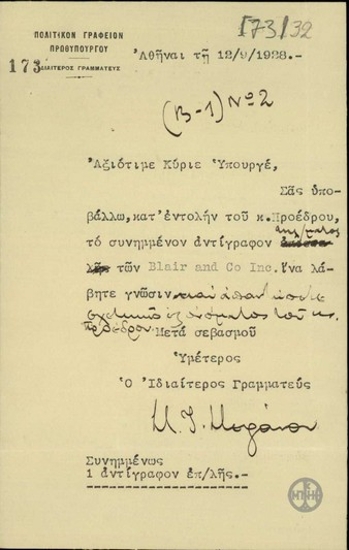 173/32
ΠΟΛΙΤΙΚΟΝ ΓΡΑΦΕΙΟΝ
ΠΡΩΘΥΠΟΥΡΓΟΥ
ΙΔΙΑΙΤΕΡΟΣ ΓΡΑΜΜΑΤΕΥΣ
173
Ἀθῆναι τῇ 12/9/1928.-
(Β-1) Νο 2
Ἀξιότιμε Κύριε Ὑπουργέ,
Σᾶς ὑπο-
βάλλω, κατ' ἐντολήν τοῦ κ. Προέδρου,
τό συνημμένον ἀντίγραφον
τῶν Blair and Co Inc. ἵνα λά-
βητε γνῶσιν καί ἀπαντήσητε
σχετικῶς ἐξ ὀνόματος τοῦ κ.
Προέδρου. Μετά σεβασμοῦ
Ὑμέτερος
Ὁ Ἰδιαίτερος Γραμματεύς
Συνημμένως
1 ἀντίγραφον ἐπ/λῆς.-